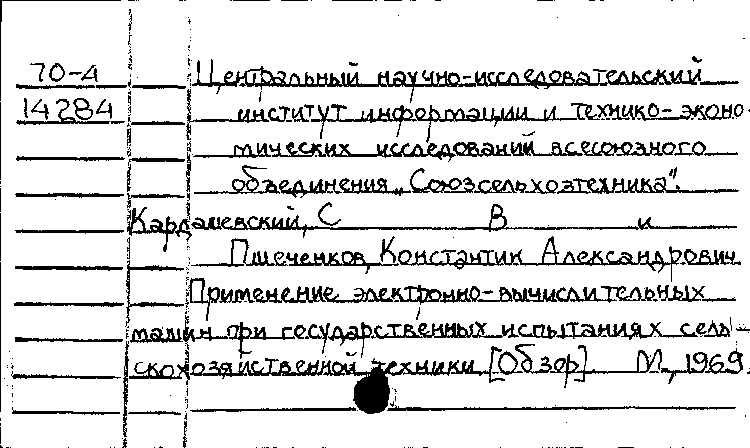 70-4 Центральный научно-исследовательский
14284 институт информации и технико-эконо-
мических исследований всесоюзного
объединения „Союзсельхозтехника".
Кардашевский, С В и
Пшеченков, Константин Александрович
Применение электронно-вычислительных
машин при государственных испытаниях сель-
скохозяйственной техники [Обзор] М., 1969.